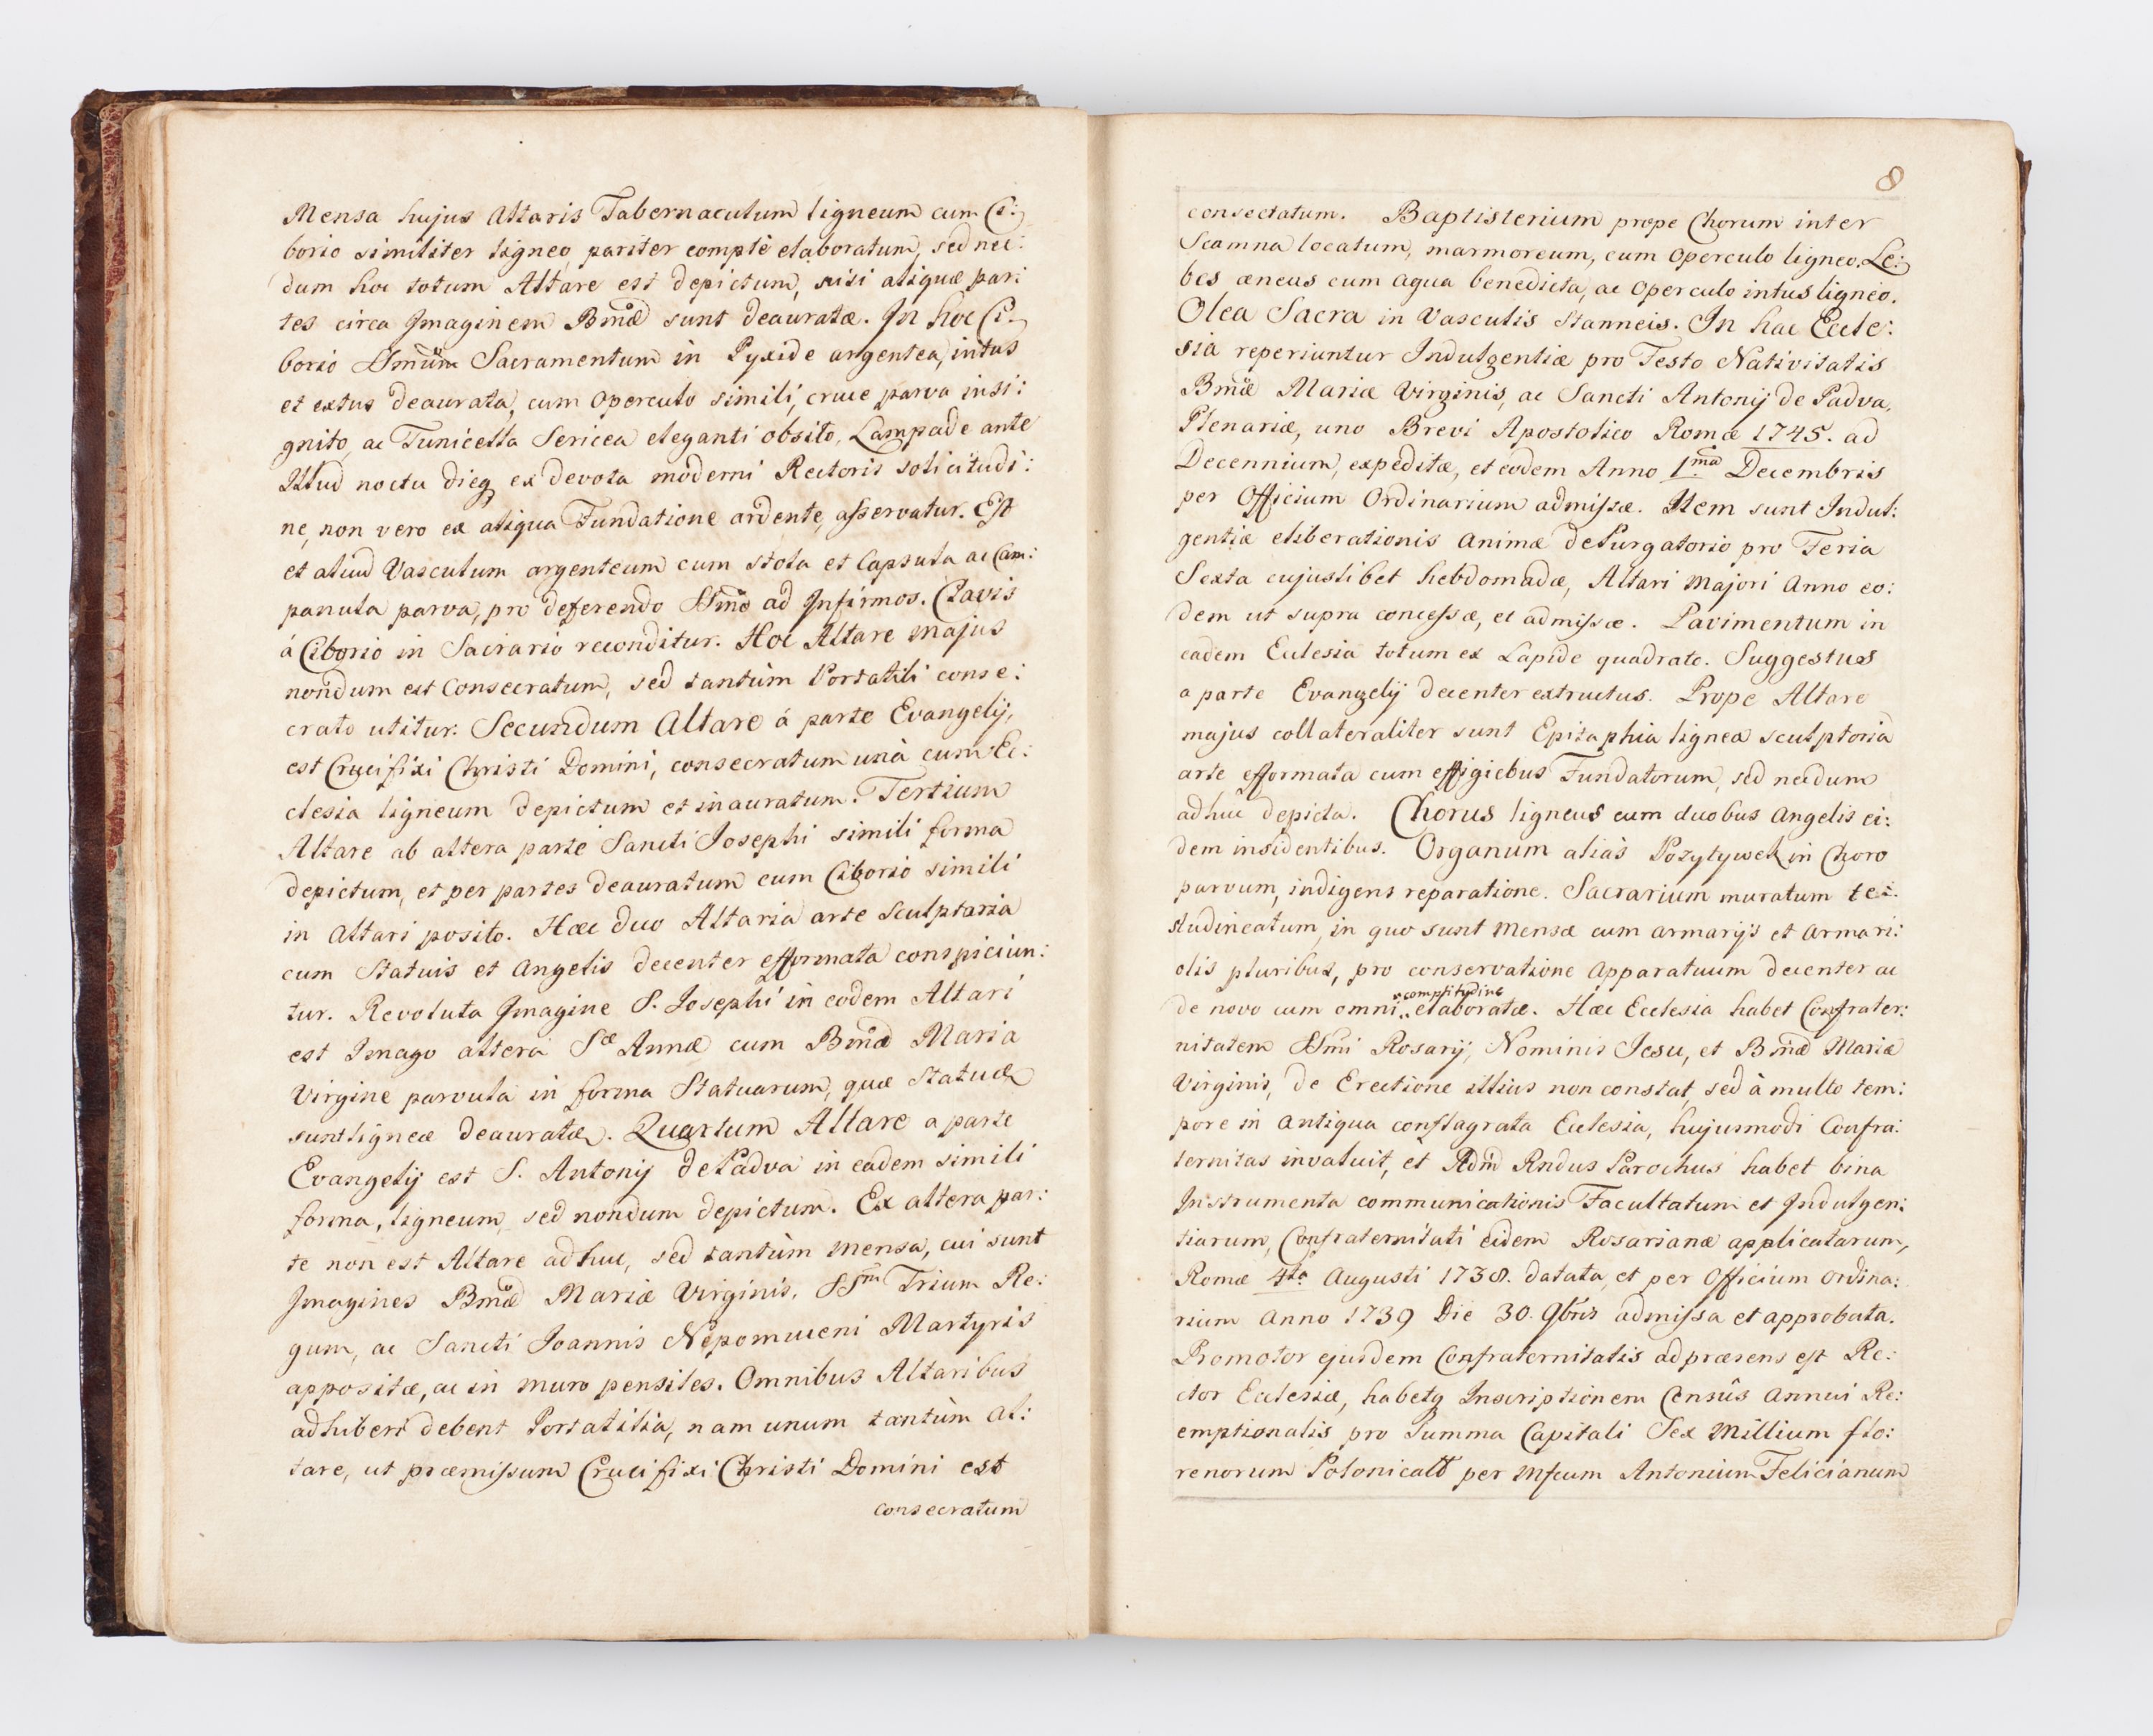 Mensa hujus Altaris Tabernaculum ligneum cum Ci:
borio similiter ligneo pariter comptè elaboratum, sed nec:
dum hoc totum Altare est depictum, nisi aliquæ par:
tes circa Imaginem Bmæ sunt deauratæ. In hoc Ci:
borio SSmum Sacramentum in Pyxide argentea, intus
et extus deaurata, cum operculo simili, cruce parva insi:
gnito, ac Tunicella Sericea eleganti obsito, Lampade ante
Illud noctu dieq ex devota moderni Rectoris solicitudi:
ne, non vero ex aliqua Fundatione ardente, asservatur. Est
et aliud Vasculum argenteum cum stola et Capsula ac Cam:
panula parva, pro deferendo SSmo ad Infirmos. Clavis
á Ciborio in Sacrario reconditur. Hoc Altare majus
nondum est Consecratum, sed tantùm Portatili conse:
crato utitur: Secundum Altare á parte Evangelij,
est Crucifixi Christi Domini, consecratum unà cum Ec:
clesia ligneum depictum et inauratum. Tertium
Altare ab altera parte Sancti Josephi simili forma
depictum, et per partes deauratum cum Ciborio simili
in Altari posito. Hæc duo Altaria arte Sculptaria
cum Statuis et Angelis decenter efformata conspiciun:
tur. Revoluta Imagine S. Josephi in eodem Altari
est Imago altera Sæ Annæ cum Bmã Maria
Virgine parvula in forma Statuarum, quæ Statuæ
sunt ligneæ deauratæ. Quartum Altare a parte
Evangelij est S. Antonij de Padva in eadem simili
forma, ligneum, sed nondum depictum. Ex altera par:
te non est Altare adhuc, sed tantùm mensa, cui sunt
Imagines Bmæ Mariæ Virginis, SSm Trium Re:
gum, ac Sancti Joannis Nepomuceni Martyris
appositæ, ac in muro pensiles. Omnibus Altaribus
adhiberi debent Portatilia, nam unum tantùm Al:
tare, ut præmissum Crucifixi Christi Domini est
consecratum
8
consectatum. Baptisterium prope Chorum inter
Scamna locatum, marmoreum, cum operculo ligneo. Le:
bes æneus cum aqua benedicta, ac operculo intus ligneo.
Olea Sacra in Vasculis Stanneis. In hac Eccle:
sia reperiuntur Indulgentiæ pro Festo Nativitatis
Bmæ Mariæ Virginis, ac Sancti Antonij de Padva,
Plenariæ, uno Brevi Apostolico Romæ 1745. ad
Decennium, expeditæ, et eodem Anno 1ma Decembris
per Officium Ordinarium admissæ. Item sunt Indul:
gentiæ eliberationis animæ de Purgatorio pro Feria
Sexta cujuslibet hebdomadæ, Altari majori Anno eo:
dem ut supra concessæ, et admissæ. Pavimentum in
eadem Ecclesia totum ex Lapide quadrato. Suggestus
a parte Evangelij decenter extructus. Prope Altare
majus collateraliter sunt Epitaphia lignea sculptoria
arte efformata cum effigiebus Fundatorum, sed necdum
adhuc depicta. Chorus ligneus cum duobus Angelis ei:
dem insidentibus. Organum aliàs Pozytywek in Choro
parvum, indigens reparatione. Sacrarium muratum te:
studineatum, in quo sunt mensæ cum armarijs et armari:
olis pluribus, pro conservatione apparatuum decenter ac
comptitudine
de novo cum omni elaboratæ. Hæc Ecclesia habet Confrater:
nitatem SSmi Rosarij, Nominis Jesu, et Bmæ Mariæ
Virginis, de Erectione illius non constat, sed à multo tem:
pore in antiqua conflagrata Ecclesia, hujusmodi Confra:
ternitas invaluit, et Admd Rndus Parochus habet bina
Instrumenta communicationis Facultatum et Indulgen:
tiarum, Confraternitati eidem Rosarianæ applicatarum,
Romæ 4ta Augusti 1738. datata, et per Officium ordina:
rium Anno 1739 Die 30. 9bris admissa et approbata.
Promotor ejusdem Confraternitatis ad præsens est Re:
ctor Ecclesiæ, habetq Inscriptionem Censûs annui Re:
emptionalis pro Summa Capitali Sex Millium flo:
renorum Polonicalt per Mfcum Antonium Felicianum